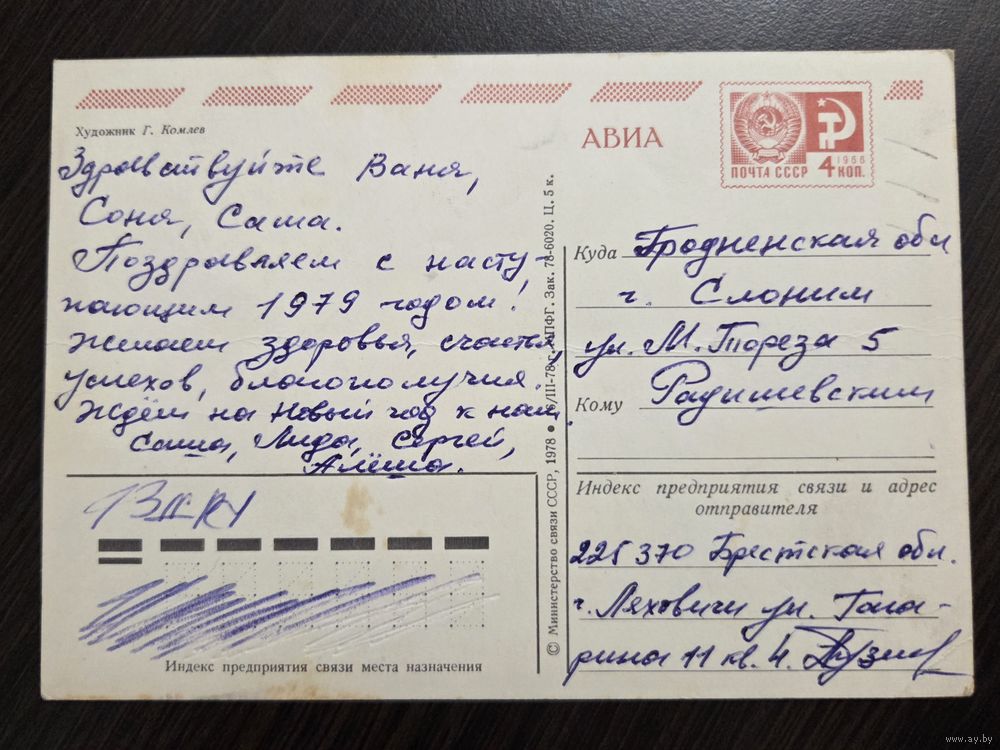 Художник Г. Комлев
Здравствуйте Ваня,
Соня, Саша.
Поздравляем с насту-
пающим 1979 годом!
Желаем здоровья, счастья,
успехов, благополучия.
Ждём на Новый год к нам.
Саша, Лида, Сергей,
Алёша.
Индекс предприятия связи места назначения
© Министерство связи СССР, 1978 ●
/III-78 г.
ППФГ. Зак. 78-6020. Ц. 5 к.
АВИА
1966
ПОЧТА СССР 4 КОП.
Куда Гродненская обл
г. Слоним
ул. М. Тореза 5
Кому Радишевским
Индекс предприятия связи и адрес
отправителя
225370 Брестская обл.
г. Ляховичи ул. Гага-
рина 11 кв. 4.
www.ay.by